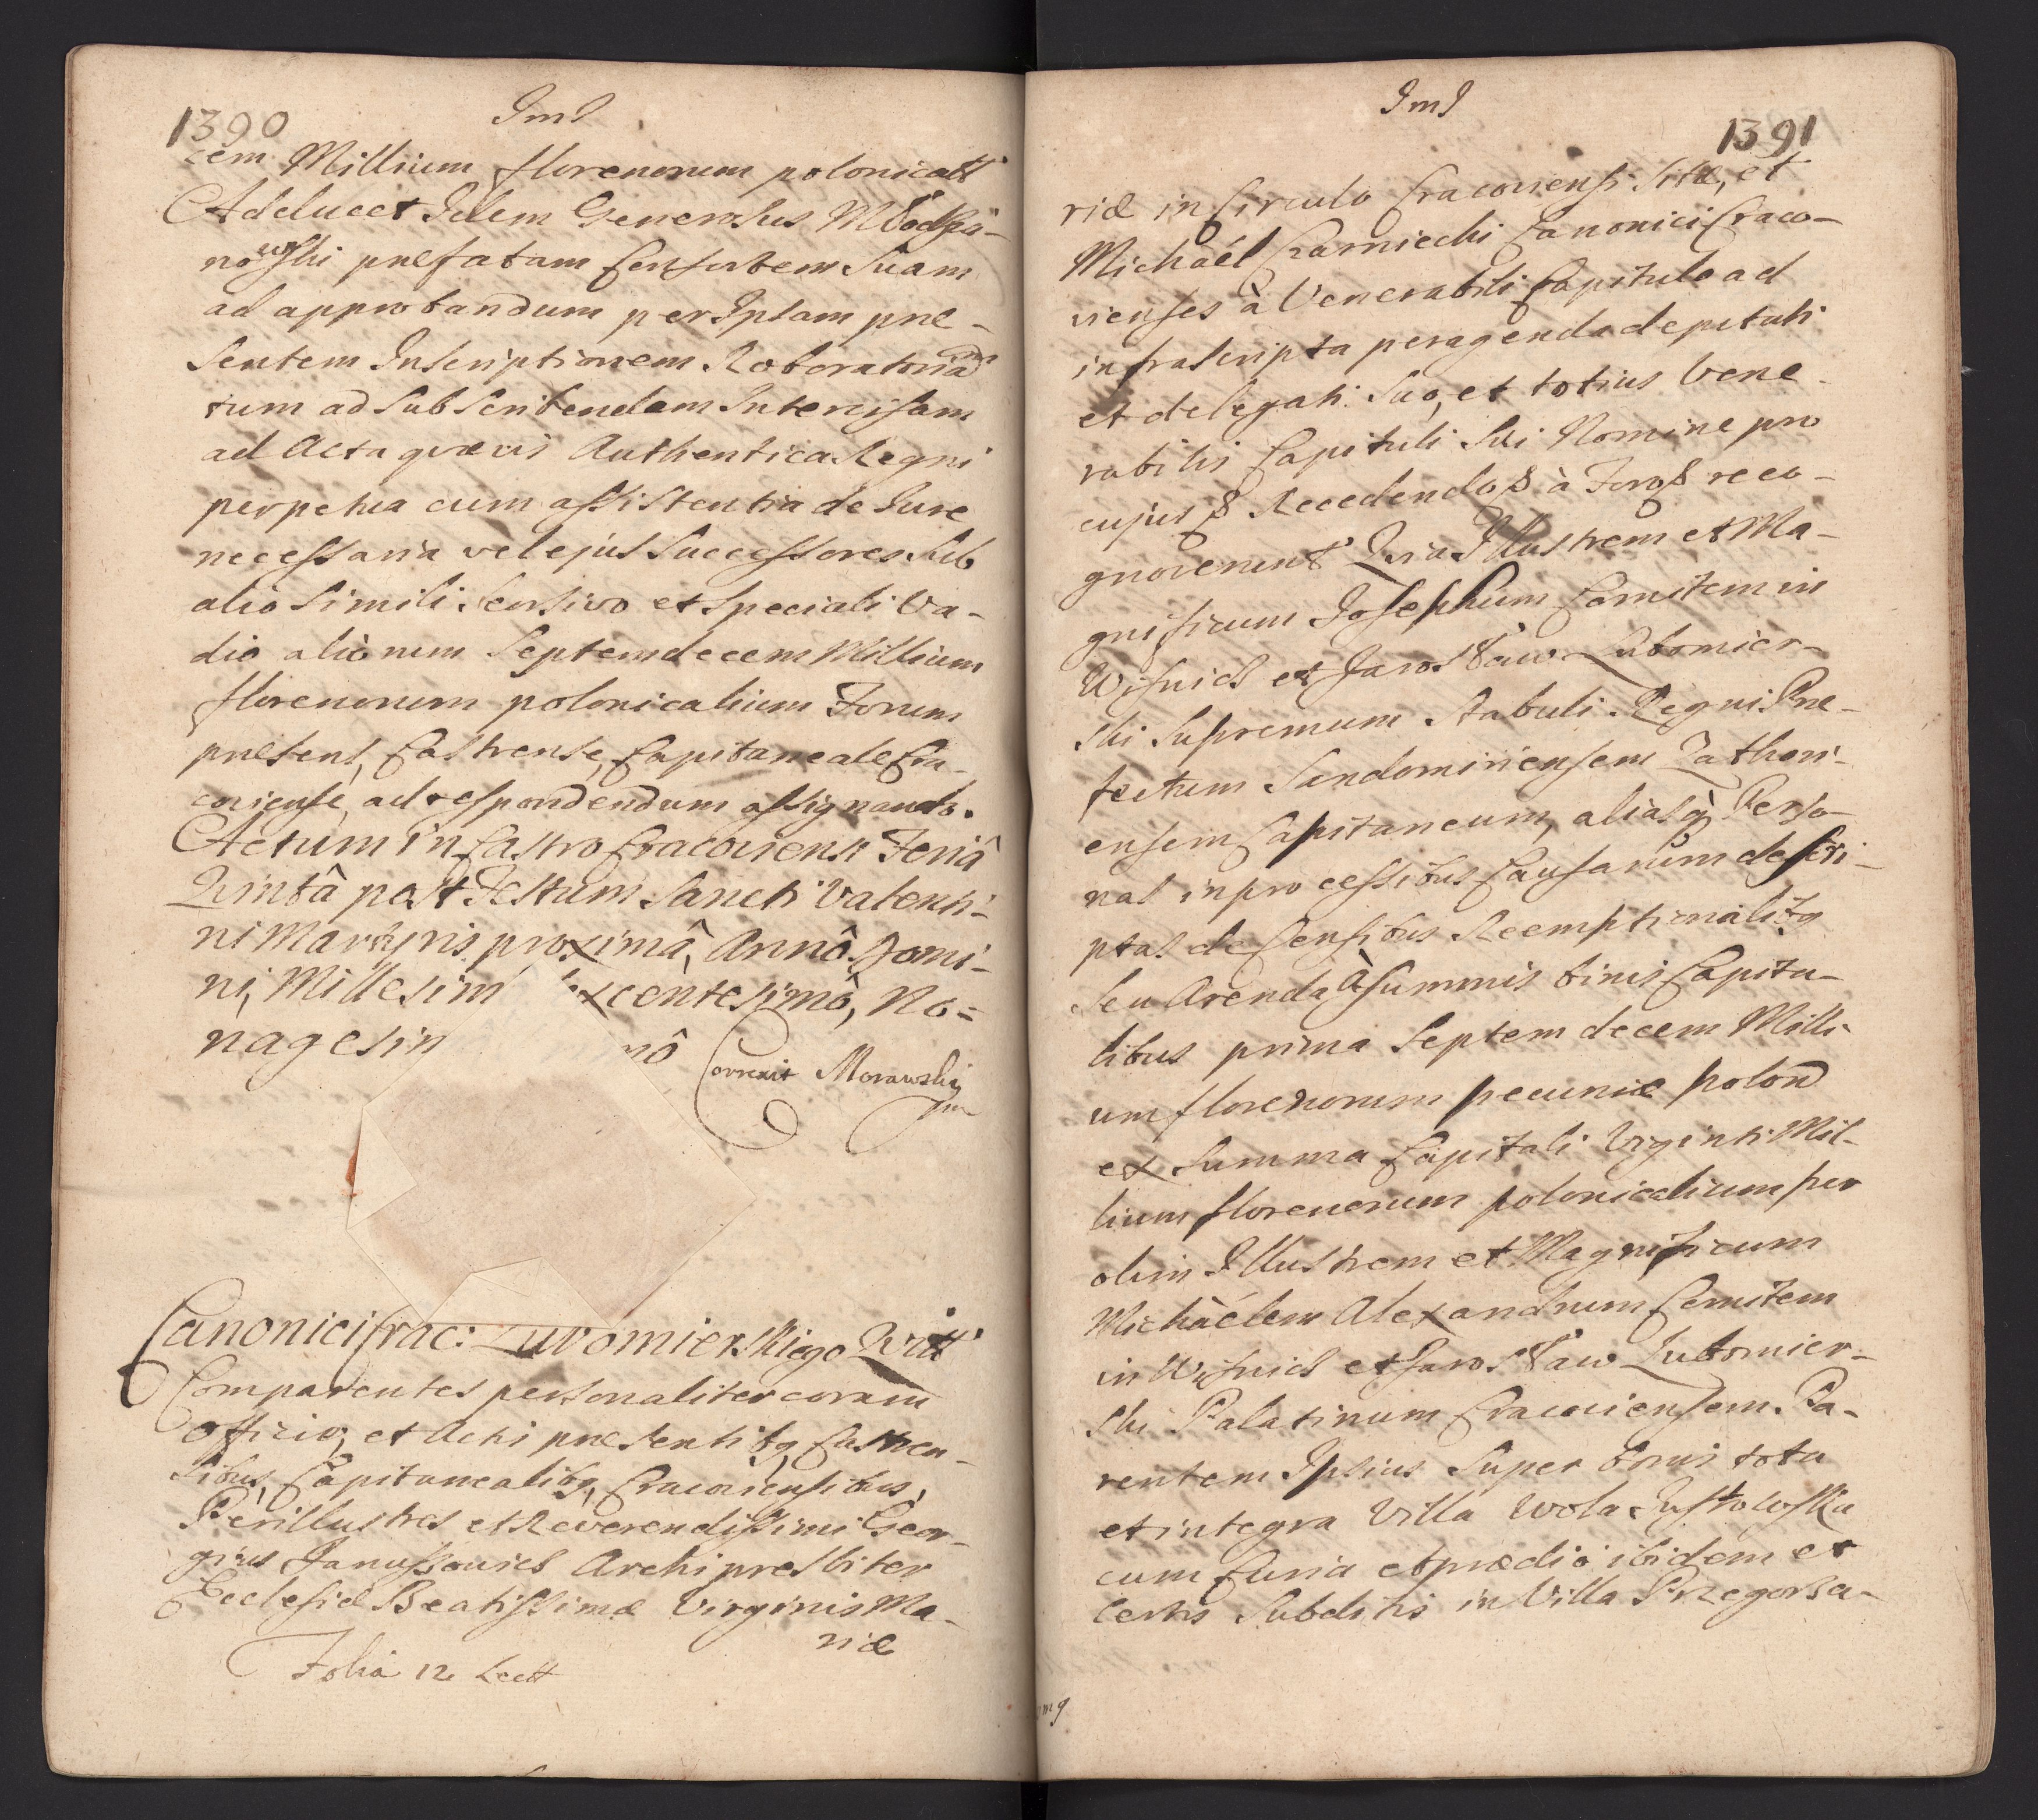 1390
Jmj
cem Millium florenorum polonicatt
Adducet Idem Generosus Młodzia-
nowski prefatam Consortem Suam
ad approbandum per Ipsam præ-
sentem Inscriptionem Roboratoriam
tum ad Subscribendam Intercisam
ad Acta quævis Authentica Regni
perpetua cum assistentia de Jure
necessaria vel ejus Successores Sub
alio Simili seorsivo et Speciali Va-
dio alionum Septemdecem Millium
florenorum polonicalium Forum
præsens, Castrense, Capitaneale Cra-
coviense, ad respondendum assignando.
Actum in Castro Cracoviensi Feriâ
Quintâ post Festum Sancti Valenti-
ni Martyris proximâ, Annô Domi-
ni, Millesim excentesimô, No-
nagesim nô
Correxit Morawski
Canonici Crac: Lubomierskiego Quitt
Comparentes personaliter coram
Officio, et Actis præsentibq Castren-
sibus, Capitanealibq, Cracoviensibus,
Perillustres et Reverendissimi Geor-
gius Januszowicz Archipresbiter
Ecclesiæ Beatissimæ Virginis Ma-
riæ
Folia 12 Lectt
Jmj
1391
riæ in Circulo Cracoviensi Sitæ, et
Michaël Czarniecki Canonici Craco-
vienses à Venerabili Capitulo ad
infrascripta peragenda deputati
et delegati Suo, et totius Vene-
rabilis Capituli Sui Nomine pro
cujus Recedendo à Foro reco-
gnoverunt Quia Illustrem et Ma-
gnificum Josephum Comitem in
Wisnicz et Jarosław Lubomier-
ski Supremum Stabuli Regni Præ-
fectum Sandomiriensem Zathori-
ensem Capitaneum, aliasq Perso-
nas in processibus Causarum descri-
ptas de Censibus Reemptionalibq
seu Arenda à Summis binis Capita-
libus prima Septemdecem Milli-
um florenorum pecuniæ polon
ex Summa Capitali Viginti Mil-
lium florenorum polonicalium per
olim Illustrem et Magnificum
Michaëlem Alexandrum Comitem
in Wisnicz et Jarosław Lubomier-
ski Palatinum Cracoviensem Pa-
rentem Ipsius Super bonis tota
et integra Villa Wola Justowska
cum Curia et prædio ibidem et
certis Subditis in Villa Przegorza-